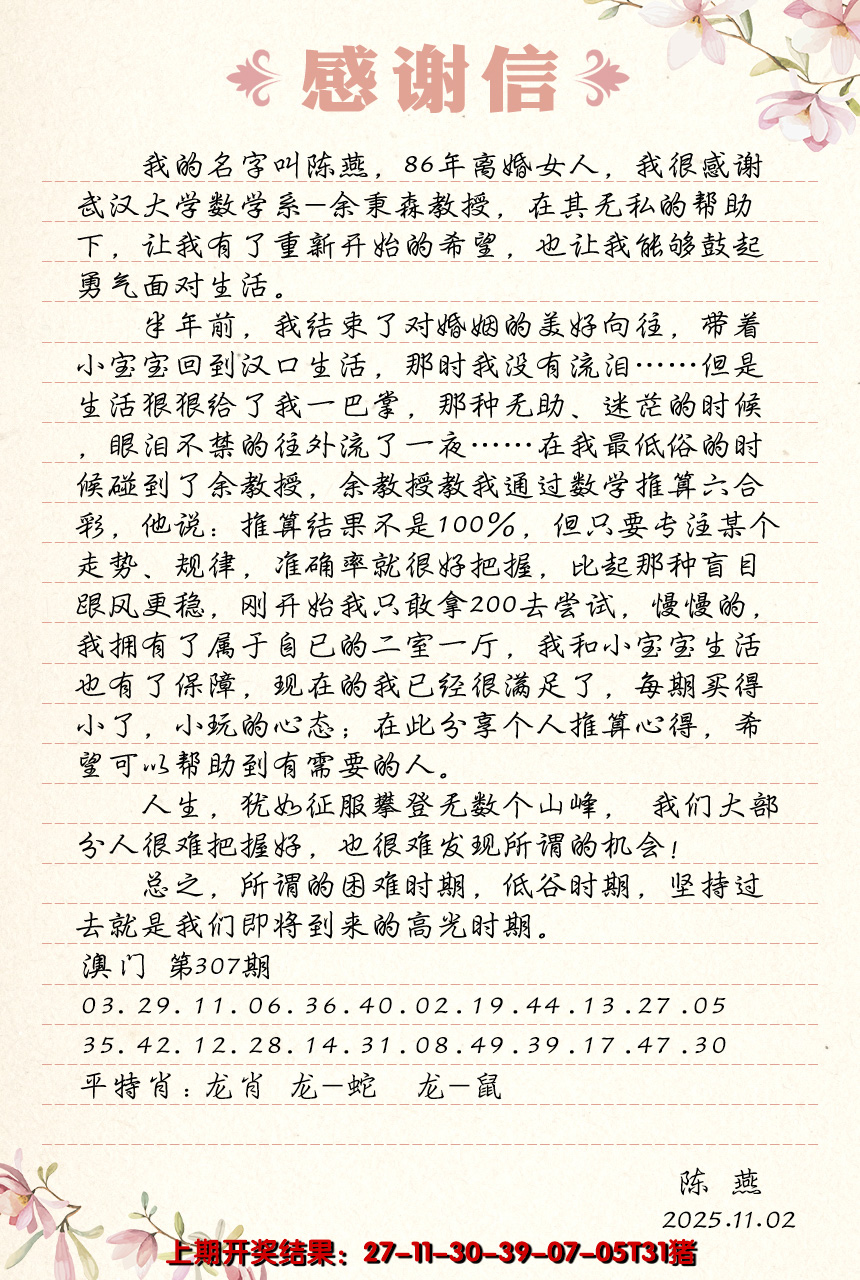 感谢信
我的名字叫陈燕，86年离婚女人，我很感谢
武汉大学数学系—余秉森教授，在其无私的帮助
下，让我有了重新开始的希望，也让我能够鼓起
勇气面对生活。
半年前，我结束了对婚姻的美好向往，带着
小宝宝回到汉口生活，那时我没有流泪……但是
生活狠狠给了我一巴掌，那种无助、迷茫的时候
，眼泪不禁的往外流了一夜……在我最低俗的时
候碰到了余教授，余教授教我通过数学推算六合
彩，他说：推算结果不是100%，但只要专注某个
走势、规律，准确率就很好把握，比起那种盲目
跟风更稳，刚开始我只敢拿200去尝试，慢慢的，
我拥有了属于自已的二室一厅，我和小宝宝生活
也有了保障，现在的我已经很满足了，每期买得
小了，小玩的心态；在此分享个人推算心得，希
望可以帮助到有需要的人。
人生，犹如征服攀登无数个山峰， 我们大部
分人很难把握好，也很难发现所谓的机会！
总之，所谓的困难时期，低谷时期，坚持过
去就是我们即将到来的高光时期。
澳门 第307期
03.29.11.06.36.40.02.19.44.13.27.05
35.42.12.28.14.31.08.49.39.17.47.30
平特肖：龙肖 龙—蛇 龙—鼠
陈 燕
2025.11.02
上期开奖结果：27-11-30-39-07-05T31猪